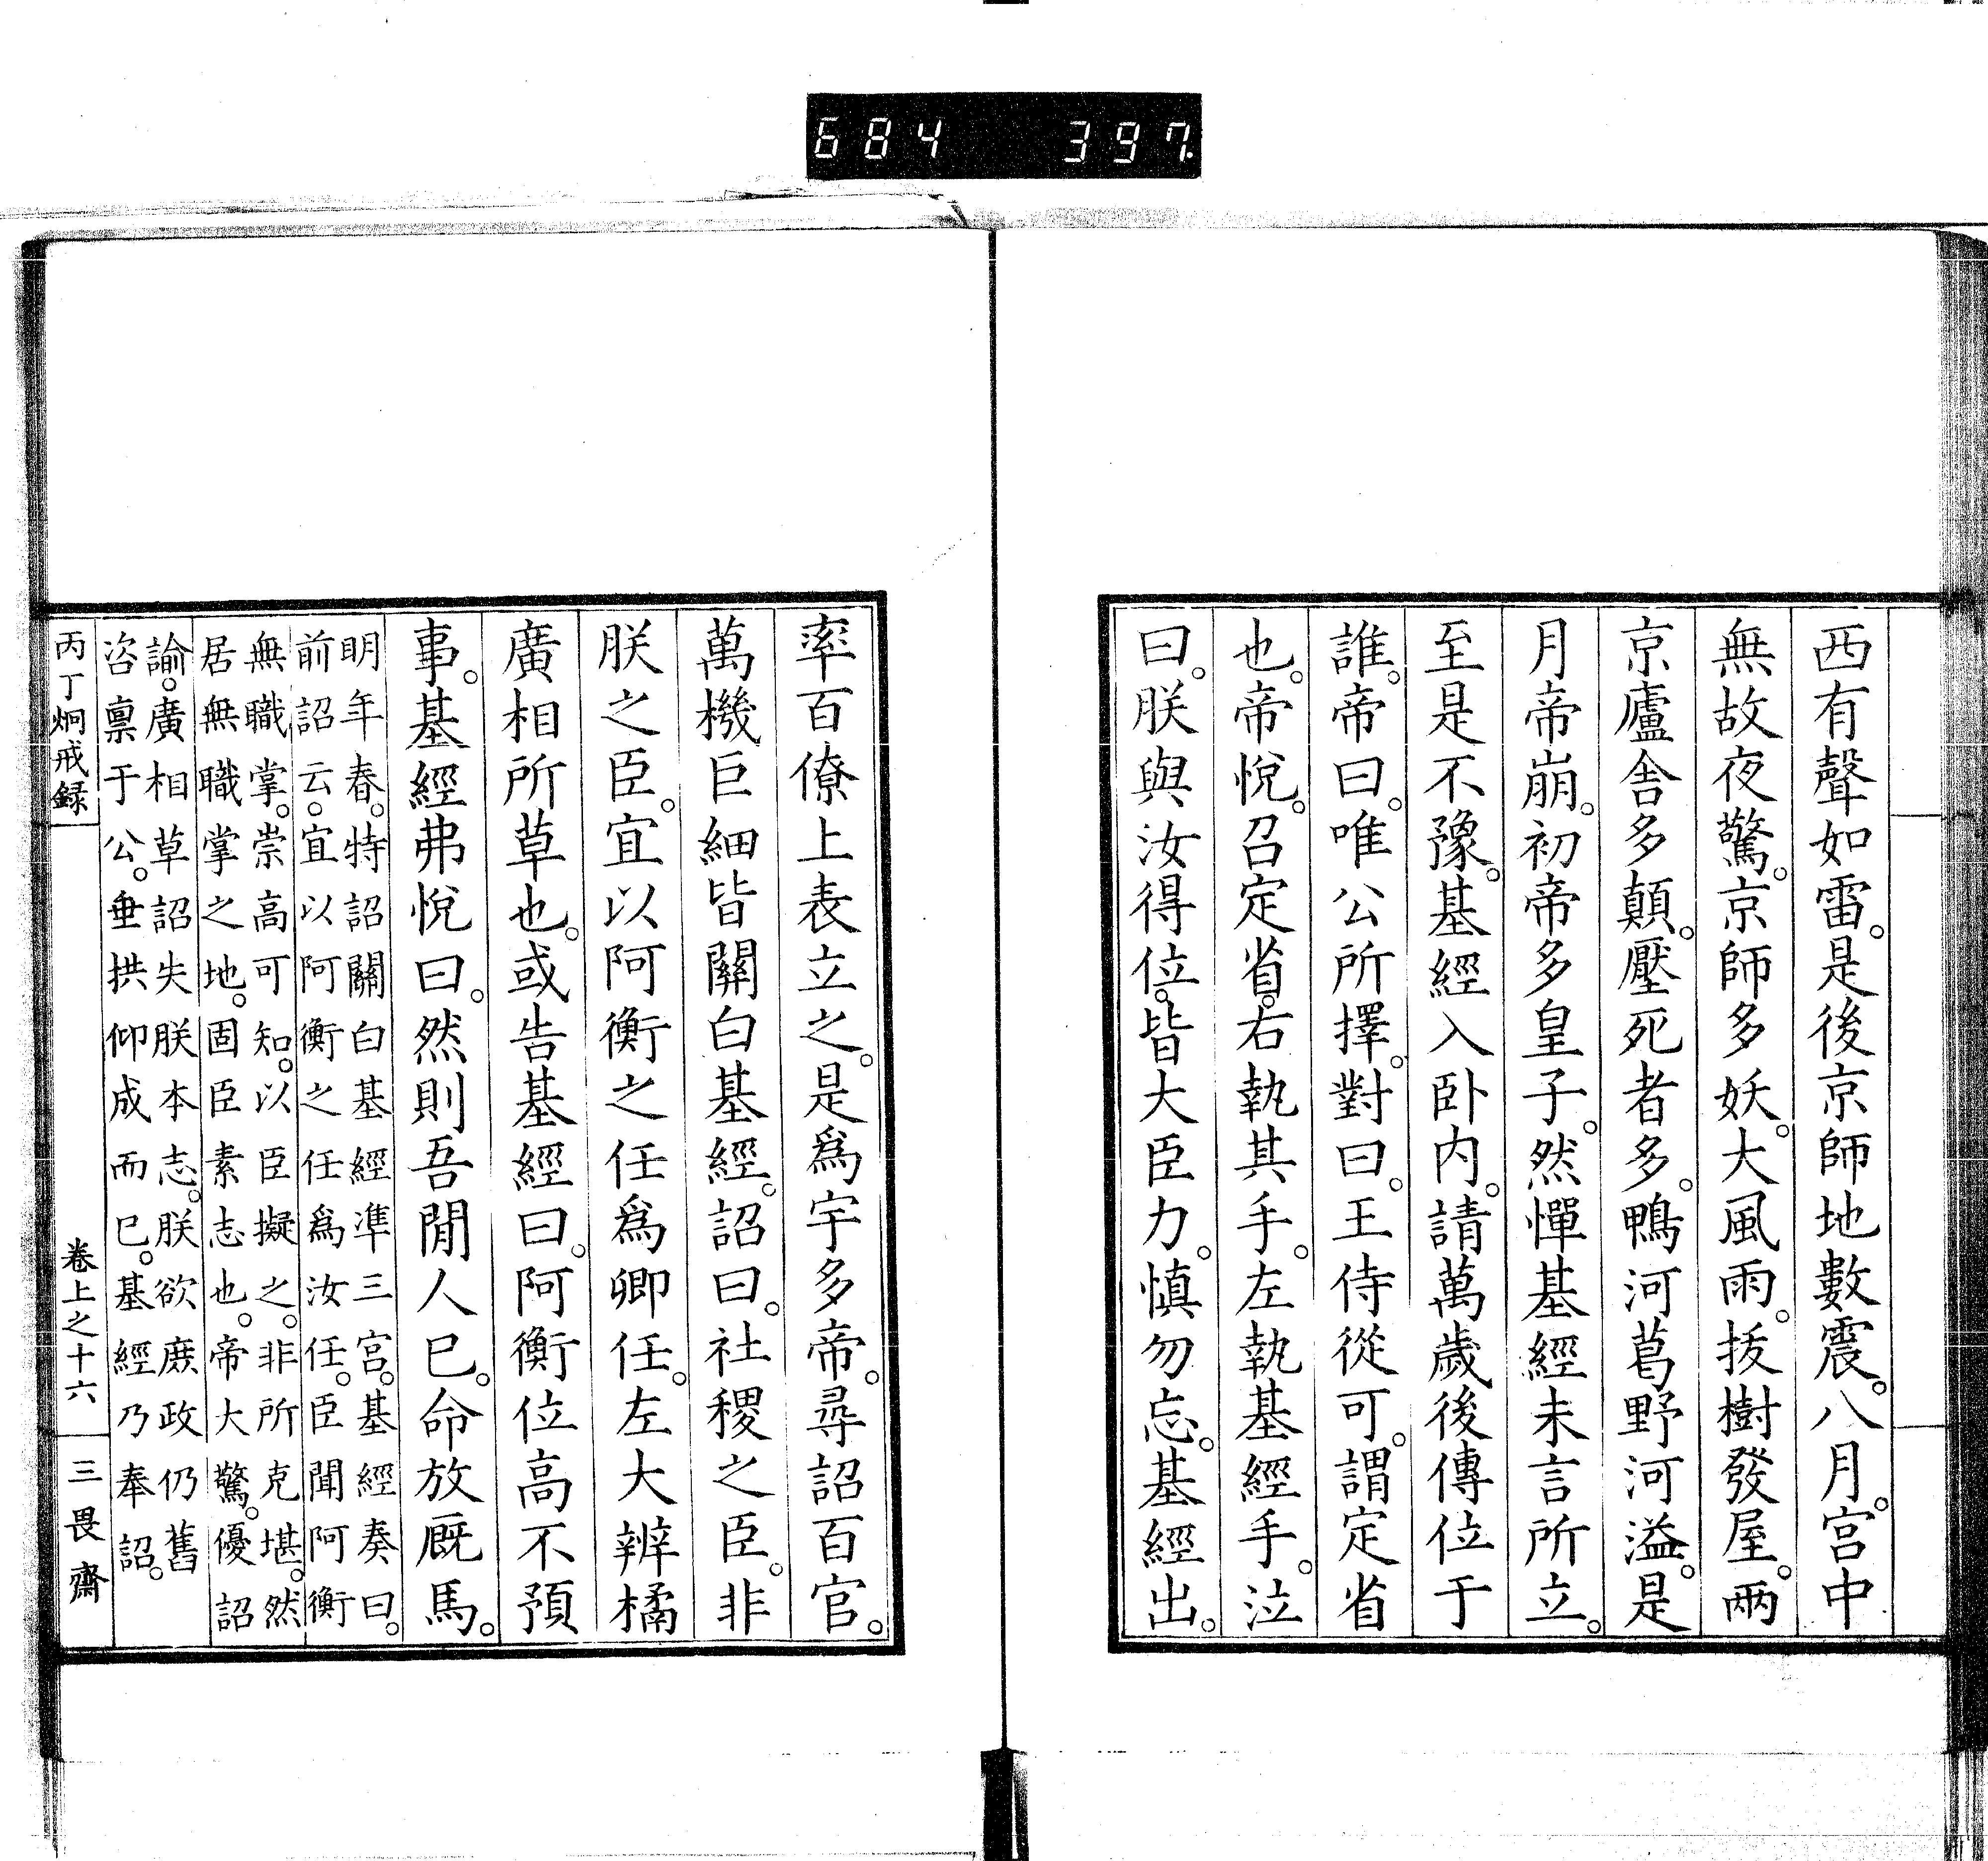 684 397.
西有聲如雷。是後京師地數震。八月。宮中
無故夜驚。京師多妖。大風雨。拔樹發屋。兩
京廬舍多顛。壓死者多。鴨河葛野河溢。是
月帝崩。初帝多皇子。然憚基經未言所立。
至是不豫。基經入臥内。請萬歲後傳位于
誰。帝曰。唯公所擇。對曰。王侍從可。謂定省
也。帝悅。召定省。右執其手。左執基經手。泣
曰。朕與汝得位。皆大臣力。慎勿忘。基經出。
率百僚上表立之。是爲宇多帝。尋詔百官。
萬機巨細皆關白基經。詔曰。社稷之臣。非
朕之臣。宜以阿衡之任爲卿任。左大辨橘
廣相所草也。或告基經曰。阿衡位高不預
事。基經弗悅曰。然則吾閒人已。命放厩馬。
明年春。特詔關白基經準三宮。基經奏曰。
前詔云。宜以阿衡之任爲汝任。臣聞阿衡
無職掌。崇高可知。以臣擬之。非所克堪。然
居無職掌之地。固臣素志也。帝大驚。優詔
諭。廣相草詔失朕本志。朕欲庶政仍舊
咨稟于公。垂拱仰成而已。基經乃奉詔。
丙丁炯戒録
卷上之十六
三畏齋